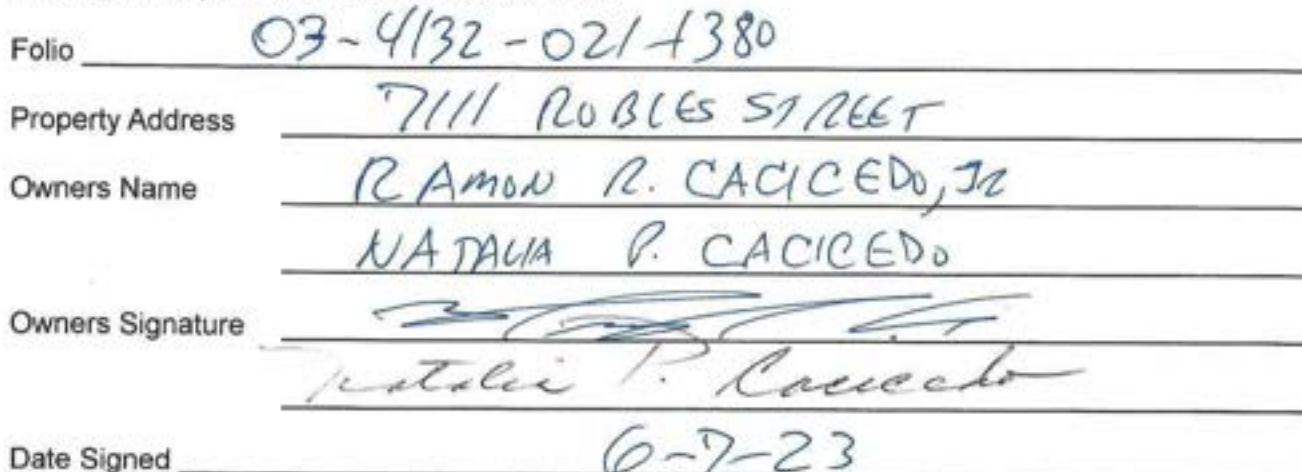 Folio 03-4132-021-1380
Property Address 7111 ROBLES STREET
Owners Name RAMON R. CACICEDO, JR
NATALIA P. CACICEDO
Owners Signature
Natalia P. Cacicedo
Date Signed 6-7-23